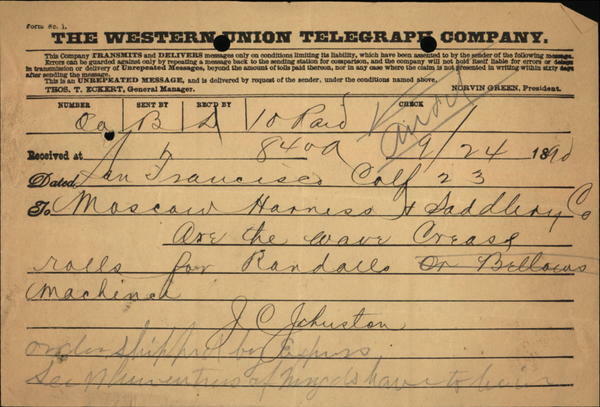 Form No. 1.
THE WESTERN UNION TELEGRAPH COMPANY.
This Company TRANSMITS and DELIVERS messages only on conditions limiting its liability, which have been assented to by the sender of the following message.
Errors can be guarded against only by repeating a message back to the sending station for comparison, and the company will not hold itself liable for errors or delays
in transmission or delivery of Unrepeated Messages, beyond the amount of tolls paid thereon, nor in any case where the claim is not presented in writing within sixty days
after sending the message.
This is an UNREPEATED MESSAGE, and is delivered by request of the sender, under the conditions named above.
THOS. T. ECKERT, General Manager. NORVIN GREEN, President.
NUMBER SENT BY REC'D BY CHECK
Oa B D 10 Paid
Received at 840a 9/24 1890
Dated San Francisco Calf 23
To Moscow Harness & Saddlery Co
Are the wave Crease
rolls for Randalls or Bellows
Machined
J C Johnston
order shipped by Express
have to